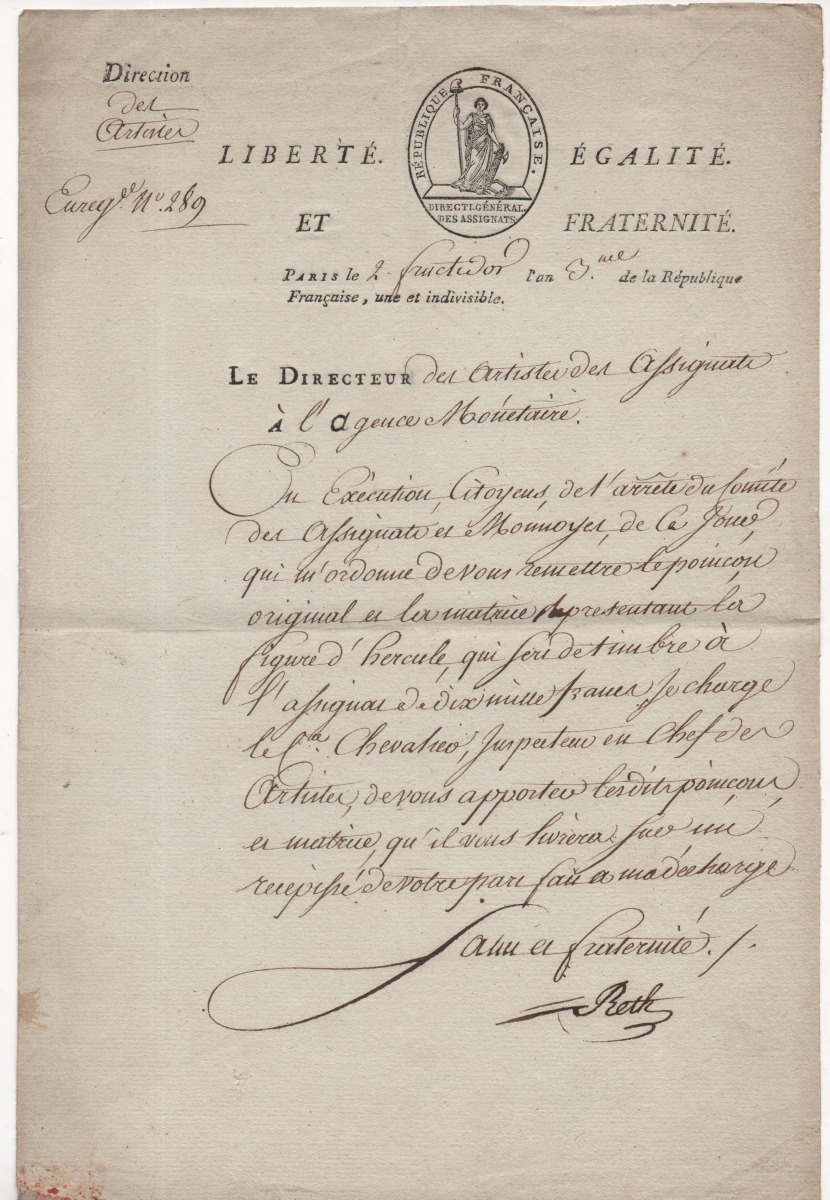 Direction
des
Artistes
Enreg.é N.o 289
RÉPUBLIQUE FRANÇAISE.
DIRECT. GÉNÉRAL.
DES ASSIGNATS
LIBERTÉ. ÉGALITÉ.
ET FRATERNITÉ.
PARIS le 2 fructidor l'an 3.me de la République
Française, une et indivisible.
LE DIRECTEUR des Artistes des Assignats
À l'Agence Monétaire.
En Exécution, Citoyens, de l'arrêté du Comité
des Assignats et Monnoyes, de Ce Jour
qui m'ordonne de vous remettre le poinçon
original et la matrice représentant la
figure d'hercule, qui sert de timbre à
l'assignat de dix mille francs, Je charge
le C.en Chevalier, Inspecteur en Chef des
Artistes, de vous apporter lesdits poinçons
et matrice, qu'il vous livrera sur un
recepissé de votre part fait a ma décharge
Salut et fraternité. /.
Reth